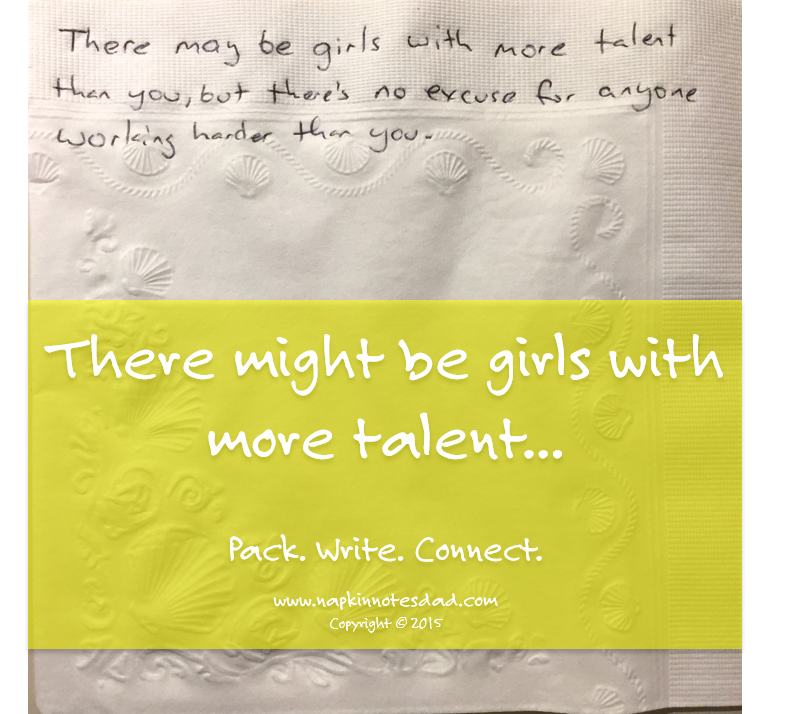 There may be girls with more talent
than you, but there's no excuse for anyone
working harder than you.
There might be girls with
more talent...
Pack. Write. Connect.
www.napkinnotesdad.com
Copyright © 2015